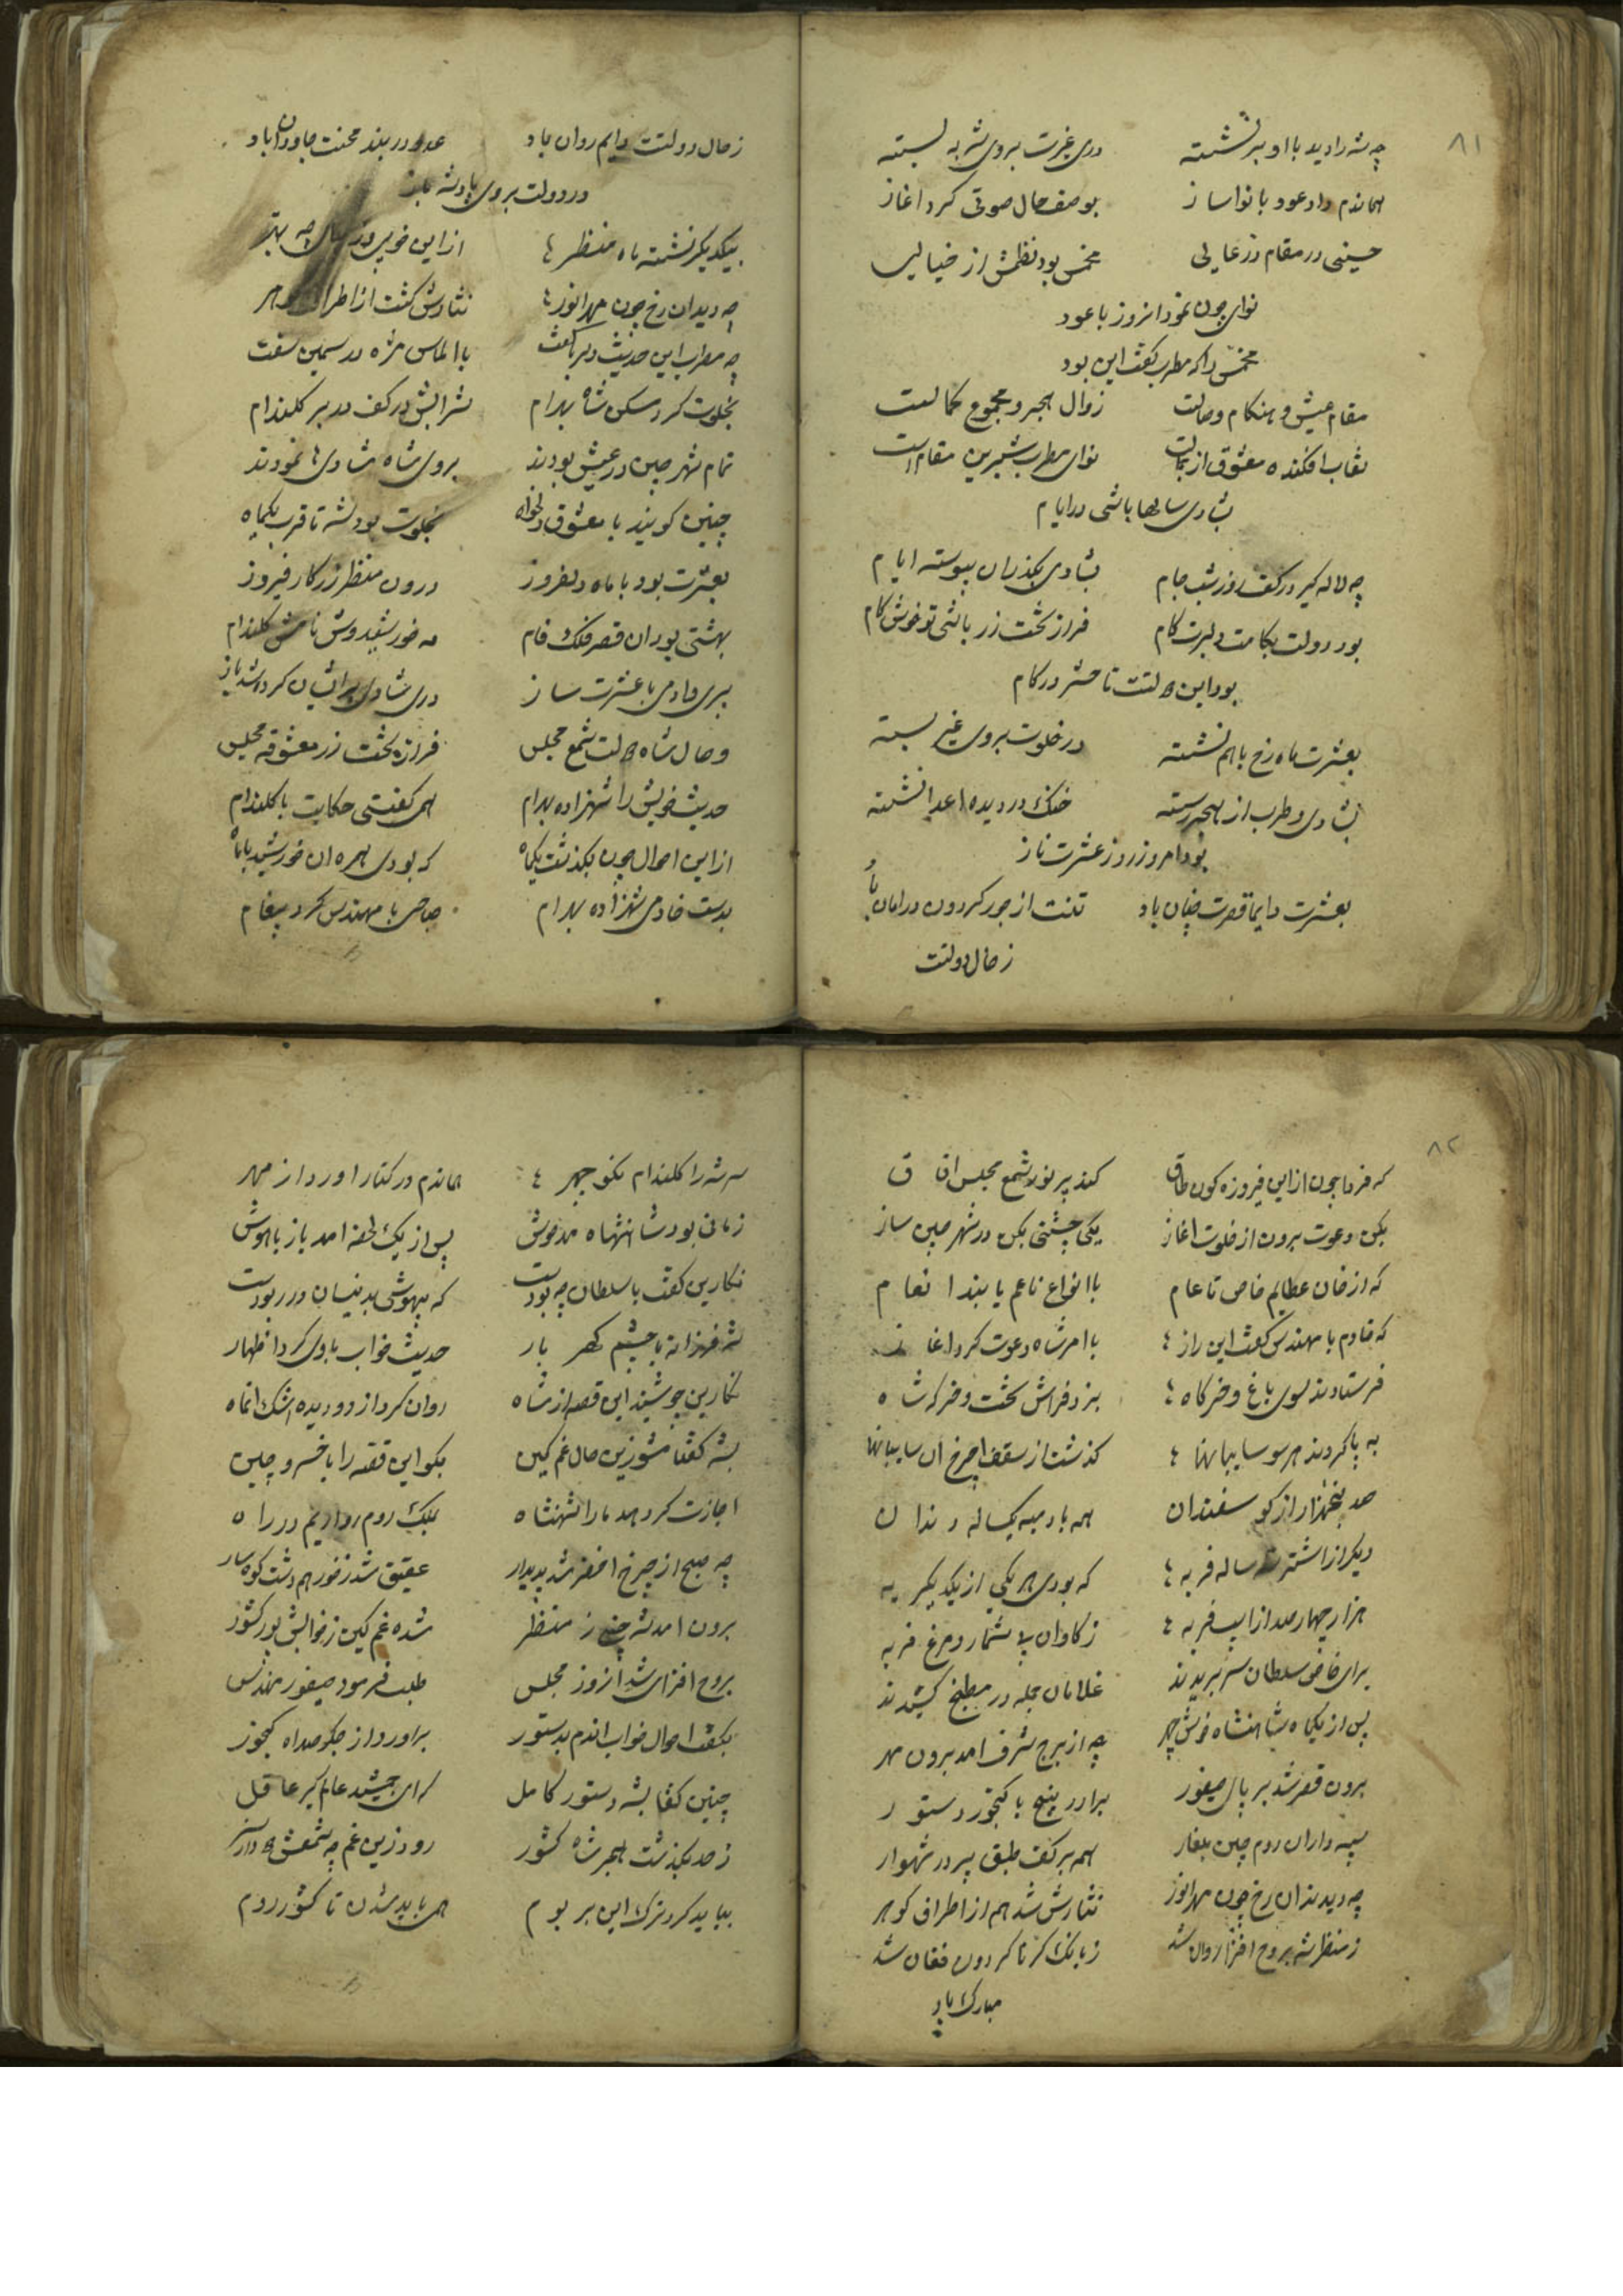 ۸۱
چه شه را دید با او بنشسته دری غیرت بروی شه به بسته
هماندم داد عود با نوا ساز بوصف حال صوتی کرد اغاز
حسینی در مقام در عالی مخمس بود نظمش از خیالی
نوای چون نمود انروز با عود
مخمس را که مطرب گفت این بود
مقام عیش و هنکام وصالت زوال هجر و مجموع کمالست
نقاب افکنده معشوق از جمالت نوای مطرب شیرین مقالست
بشادی سالها باشی در ایام
چه لاله گیر در کف روز و شب جام بشادی بکذران پیوسته ایام
بود دولت بکامت دلبرت کام فراز تخت زر باشی تو خوش کام
بود این دولتت تا حشر در کام
بعشرت ماه رخ باهم نشسته در خلوت بروی غیر بسته
بشادی و طرب از هجر رسته خدنک در دیده اعدا نشسته
بود امروز روز عشرت ناز
بعشرت دایما قصرت چنان باد تنت از جور کردون در امان باد
ز حال دولتت
ز حال دولتت دایم روان باد عدو در بند محنت جاودان باد
در دولت بروی پادشه باز
بیکدیکر نشسته ماه منظر از این خوبی در چه بهتر
چه دیدان رخ چون مهر انور نثارش کشت از اطراف کوهر
چه مطرب این حدیث دلبر با گفت با الماس مژه در سیمین سفت
بخلوت کرد مسکن شاه بهرام شرابش در کف در بر کلندام
تمام شهر چین در عیش بودند بروی شاه شادی ها نمودند
چنین کویند با معشوق دلخواه بخلوت بود شه تا قرب یکماه
بعشرت بود با ماه دلفروز درون منظر زرکار فیروز
بهشتی بود ان قصر فلک فام مه خورشید وش نامش کلندام
پری و ادمی با عشرت ساز دری شادی برایشان کرده شد باز
وصال شاه دولت شمع مجلس فراز تخت زر معشوقه مجلس
حدیث خویش را شهزاده بهرام همی کفتی حکایت با کلندام
از این احوال چون بکذشت یکماه که بودی همره ان خورشید با ماه
بدست خادمی شهزاده بهرام صباحی با مهندس کرد پیغام
۸۲
که فردا چون از این فیروزه کون طاق کند پر نور شمع مجلس افاق
بکن دعوت برون از خلوت اغاز یکی جشنی بکن در شهر چین ساز
که از خان عطایم خاص تا عام با انواع ناعم یابند انعام
که خادم با مهندس گفت این راز با امر شاه دعوت کرد اغاز
فرستادند سوی باغ و خرکاه بزد فراش تخت و خرکه شاه
به پا کردند هر سو سایبانها کذشت از سقف چرخ ان سایبانها
صد پنجهزار از کوسفندان همه بادمبه یکساله دندان
دیکر از اشتر سه ساله فربه که بودی هر یکی از یکدیکر به
هزار چهار صد از اسب فربه ز کاوان بی شمار و مرغ فربه
برای خاص سلطان سر بریدند غلامان جمله در مطبخ کشیدند
پس از یکماه شاهنشاه خوش چهر چه از برج شرف امد برون مهر
برون قصر شد بر پای صیفور برادر پنج با کنجور دستور
سپه داران روم چین بلغار همه بر کف طبق پر در شهوار
چه دیدندان رخ چون مهر انور نثارش شد هم از اطراف کوهر
ز منظر شه بروح افزا روان شد ز بانک کرنا کردون فغان شد
مبارک باد
سر شه را کلندام نکو چهر هماندم در کنار اورد از مهر
زمانی بود شاهنشاه مدهوش پس از یک لحظه امد باز باهوش
نکارین گفت با سلطان چه بودست که بیهوشی بدینسان در ربودست
شه فرزانه با چشم کهر بار حدیث خواب با وی کرد اظهار
نکارین چو شنید این قصه از شاه روان کرد از دو دیده اشک انماه
بشه گفتا مشو زین حال غم کین بکو این قصه را با خسرو چین
اجازت کر دهد مارا شهنشاه بملک روم رو اریم در راه
چه صبح از چرخ اخضر شد پدیدار عقیق شد ز خور هم دشت کوهسار
برون امد شه چین ز منظر شده غم کین ز خوابش بور کشور
بروح افزای شد انروز مجلس طلب فرمود صیفور مهندس
بکفت احوال خواب اندم بدستور براورد از جکر صد اه کنجور
چنین کفتا بشه دستور کامل که ای جمشید عالم کیر عاقل
ز حد بکذشت هجر شاه کشور رود زین غم چه شمعش
بباید کرد ترک این بر بوم همی باید شدن تا کشور روم